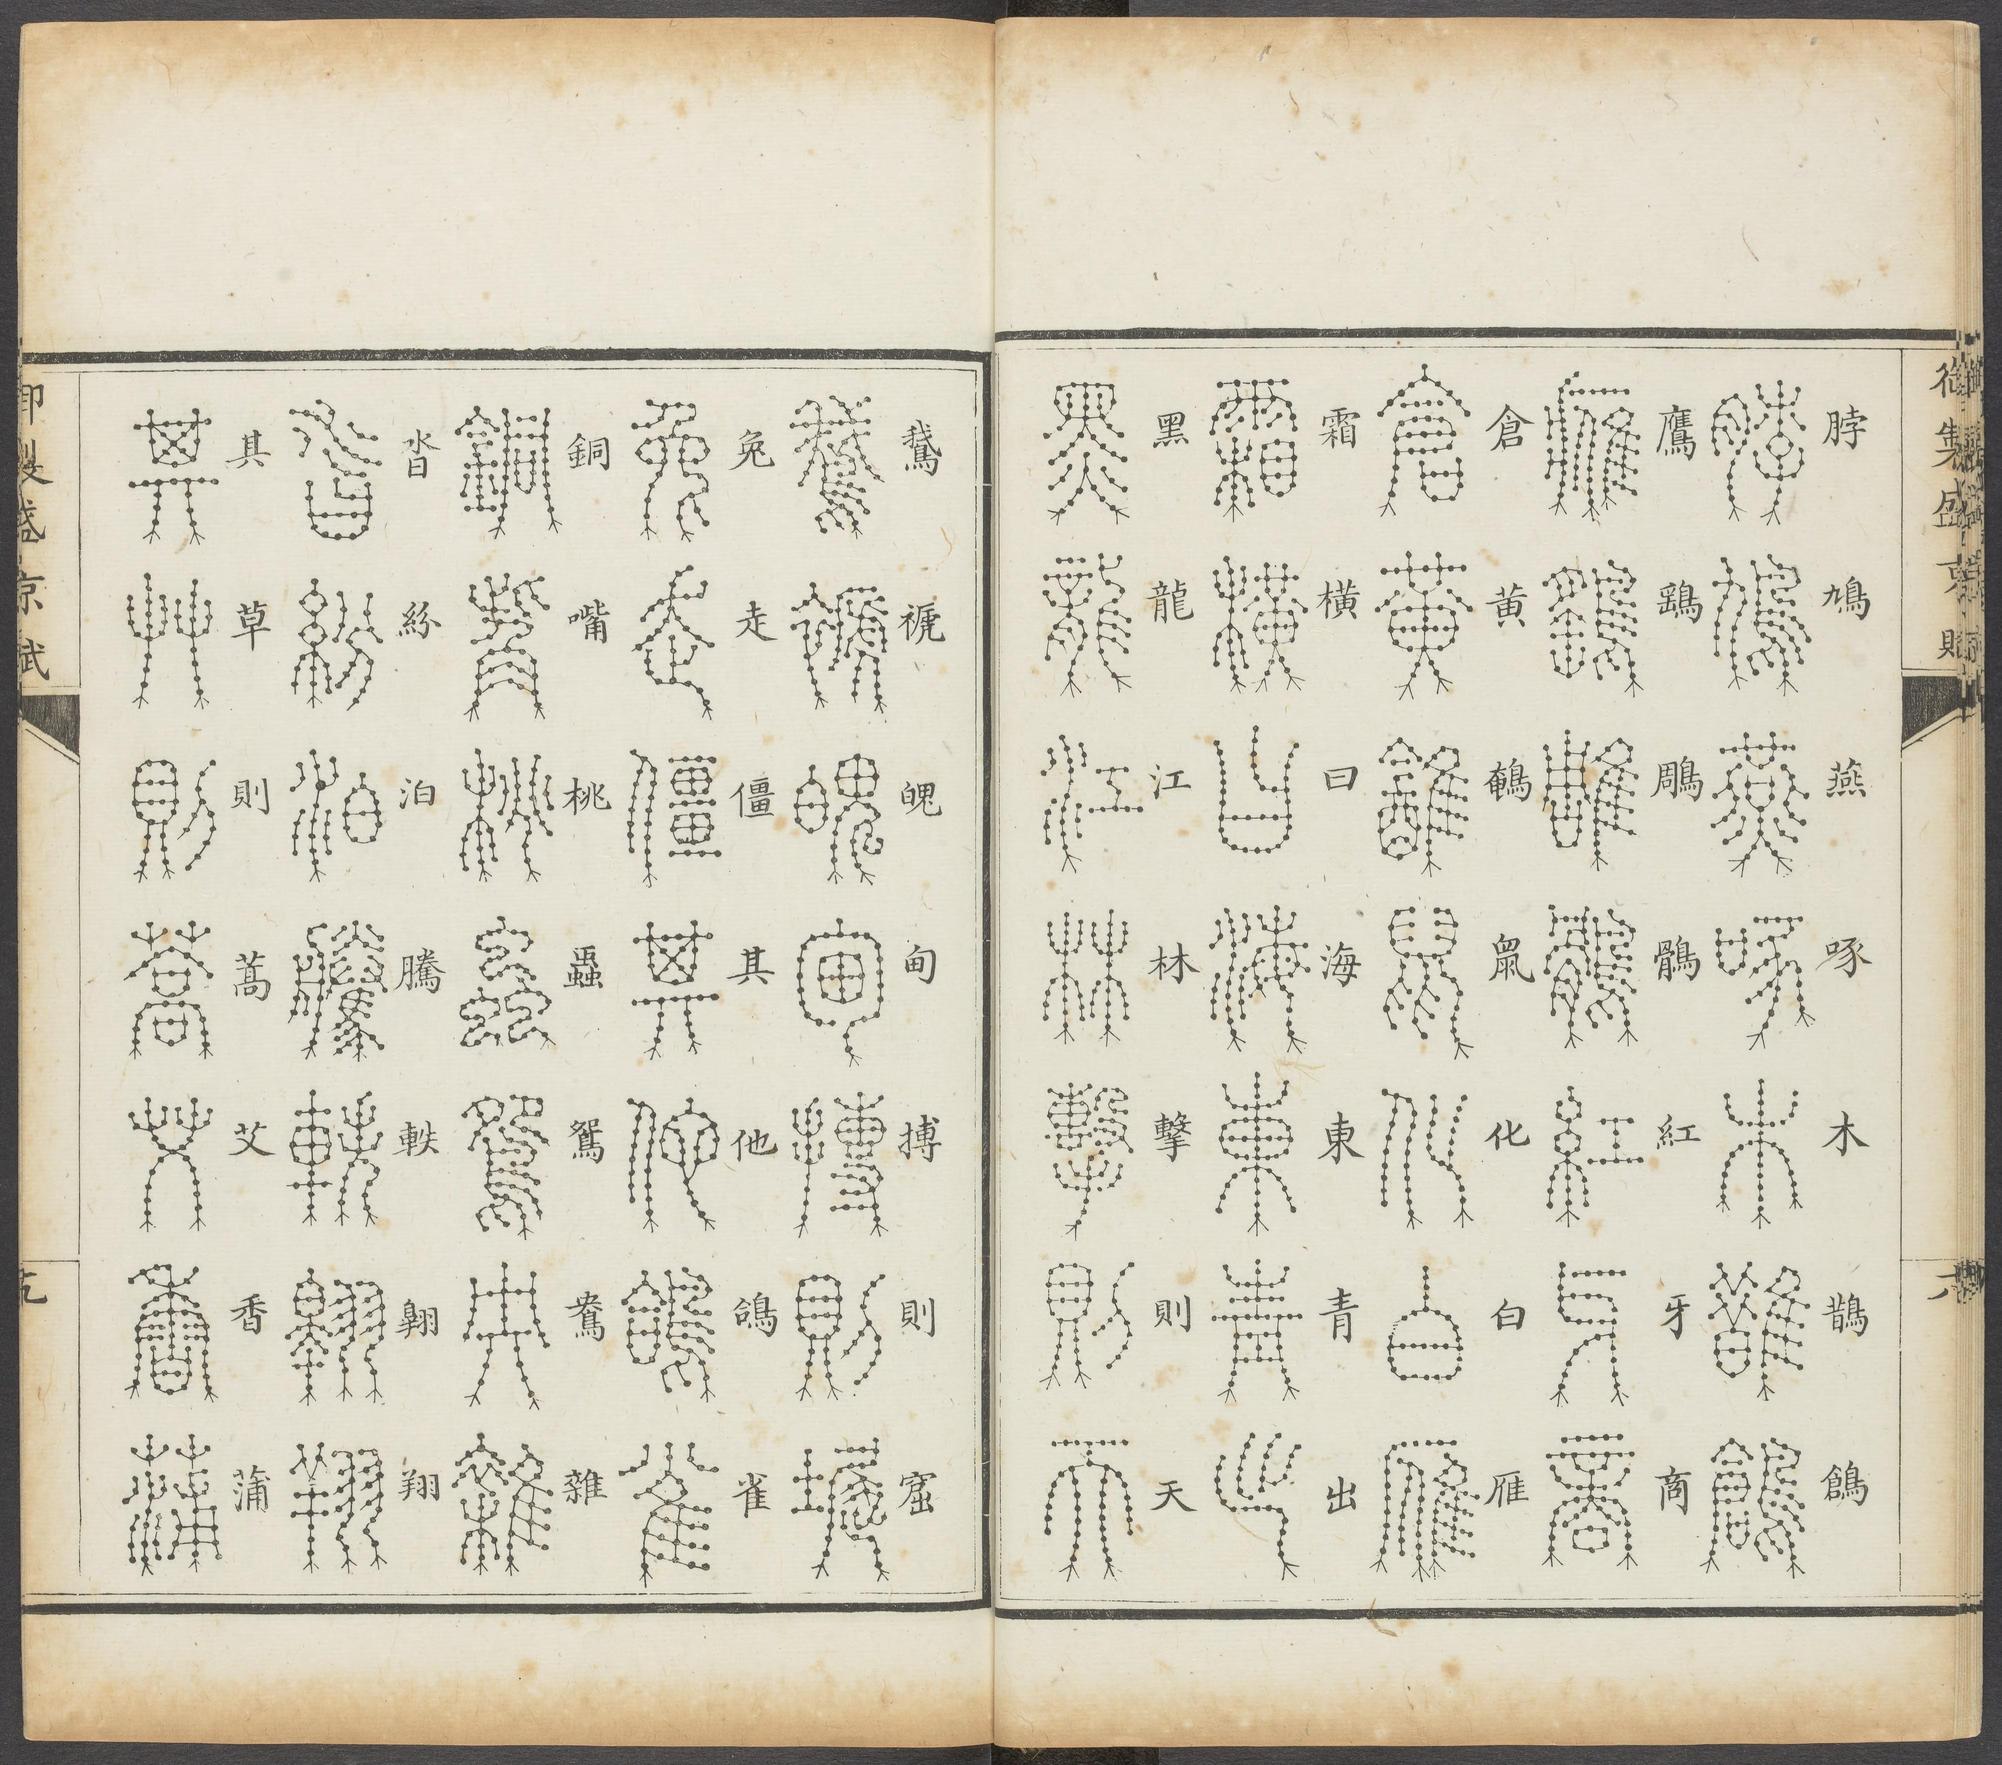 御製盛京賦
脖鳩燕啄木鵲鶬
鷹鷂鵰鶻紅牙商
倉黄鵪鼠化白雁
霜橫曰海東青出
黑龍江林擊則天
鵝褫魄甸搏則窟
兔走僵其他鴿雀
銅嘴桃蟲鴛鴦雜
沓紛泊騰軼翺翔
其草則蒿艾香蒲
御製盛京賦